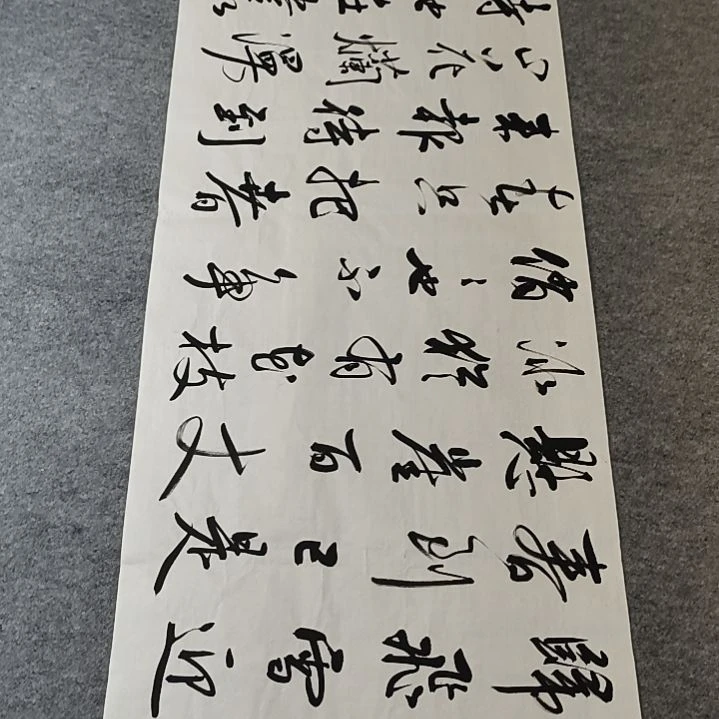 歸飛雪迎
春到已是
懸崖百丈
冰猶有花枝
俏俏也不爭
春只把春
來報待到
山花爛漫
時她在叢